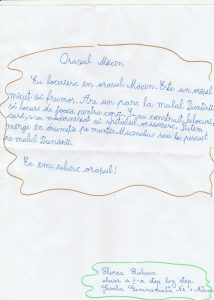 Orașul Măcin
Eu locuiesc în orașul Măcin. Este un orășel
micuț și frumos. Are un parc la malul Dunării
și locuri de joacă pentru copii. S-au construit blocuri,
case, s-a modernizat și spitalul orășenesc. Putem
merge în drumeții pe munții Măcinului sau la pescuit
pe malul Dunării.
Eu îmi iubesc orașul!
Florea Raluca
clasa a II-a step by step
Școala Gimnazială Nr. 1 Măcin